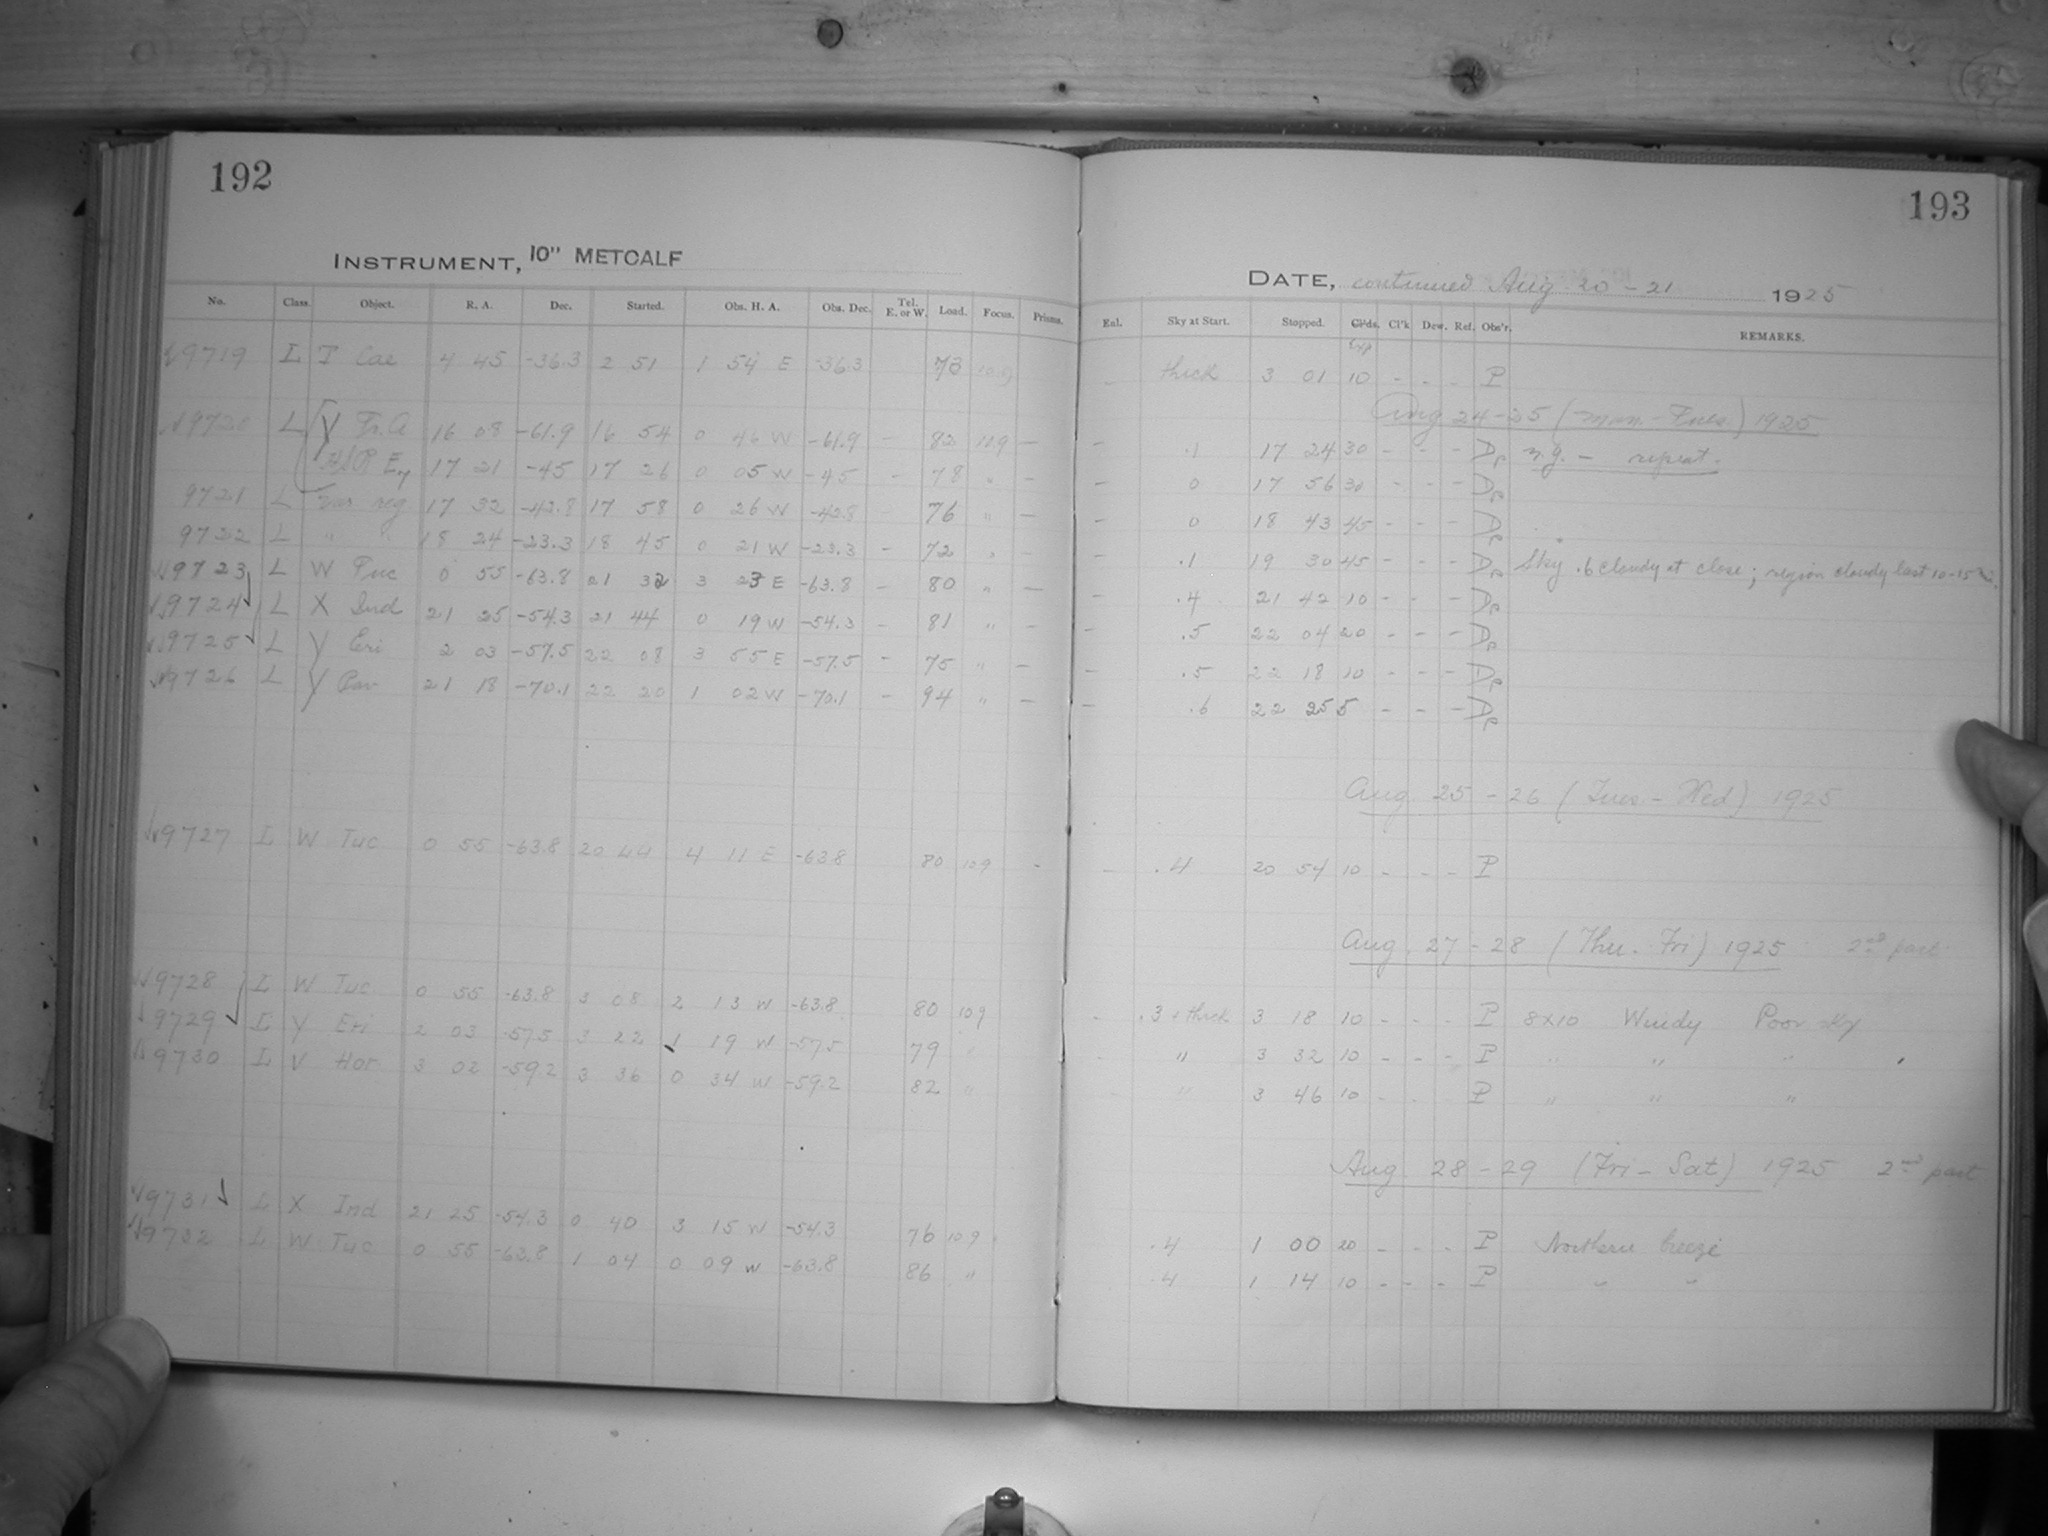 192
INSTRUMENT, 10" METCALF
No. Class. Object. R. A. Dec. Started. Obs. H. A. Obs. Dec. Tel. E. or W. Load. Focus. Prisms.
9719 L T Cae 4 45 -36.3 2 51 1 54 E -36.3 73 109
9720 L Y Tr.A 16 08 -61.9 16 54 0 46 W -61.9 - 82 109 -
17 21 -45 17 26 0 05 W -45 - 78 " -
9721 L Var reg 17 32 -42.8 17 58 0 26 W -42.8 - 76 " -
9722 L " " 18 24 -23.3 18 45 0 21 W -23.3 - 72 " -
9723 L W Tuc 0 55 -63.8 21 32 3 23 E -63.8 - 80 " -
9724 L X Ind 21 25 -54.3 21 44 0 19 W -54.3 - 81 " -
9725 L Y Eri 2 03 -57.5 22 08 3 55 E -57.5 - 75 " -
9726 L Y Pav 21 18 -70.1 22 20 1 02 W -70.1 - 94 " -
9727 L W Tuc 0 55 -63.8 20 44 4 11 E -63.8 80 109 -
9728 L W Tuc 0 55 -63.8 3 08 2 13 W -63.8 80 109
9729 L Y Eri 2 03 -57.5 3 22 1 19 W -57.5 79 "
9730 L V Hor 3 02 -59.2 3 36 0 34 W -59.2 82 "
9731 L X Ind 21 25 -54.3 0 40 3 15 W -54.3 76 109
9732 L W Tuc 0 55 -63.8 1 04 0 09 W -63.8 86 "
193
DATE, continued Aug 20-21 1925
Eul. Sky at Start. Stopped. Cl'ds. Cl'k Dew. Ref. Obs'r. REMARKS.
Exp
- thick 3 01 10 - - - P
Aug 24-25 (Mon.-Tues.) 1925
- .1 17 24 30 - - - De n.g. - repeat.
- 0 17 56 30 - - - De
- 0 18 43 45 - - - De
- .1 19 30 45 - - - De Sky .6 cloudy at close; region cloudy last 10-15
- .4 21 42 10 - - - De
- .5 22 04 20 - - - De
- .5 22 18 10 - - - De
- .6 22 25 5 - - - De
Aug. 25-26 (Tues.-Wed) 1925
- .4 20 54 10 - - - P
Aug. 27-28 (Thu. Fri) 1925 2nd part
- .3 + thick 3 18 10 - - - P 8x10 Windy Poor sky
" 3 32 10 - - - P " " "
" 3 46 10 - P " " "
Aug. 28-29 (Fri-Sat) 1925 2nd part
.4 1 00 20 - - - P Northern breeze
.4 1 14 10 - - - P " "